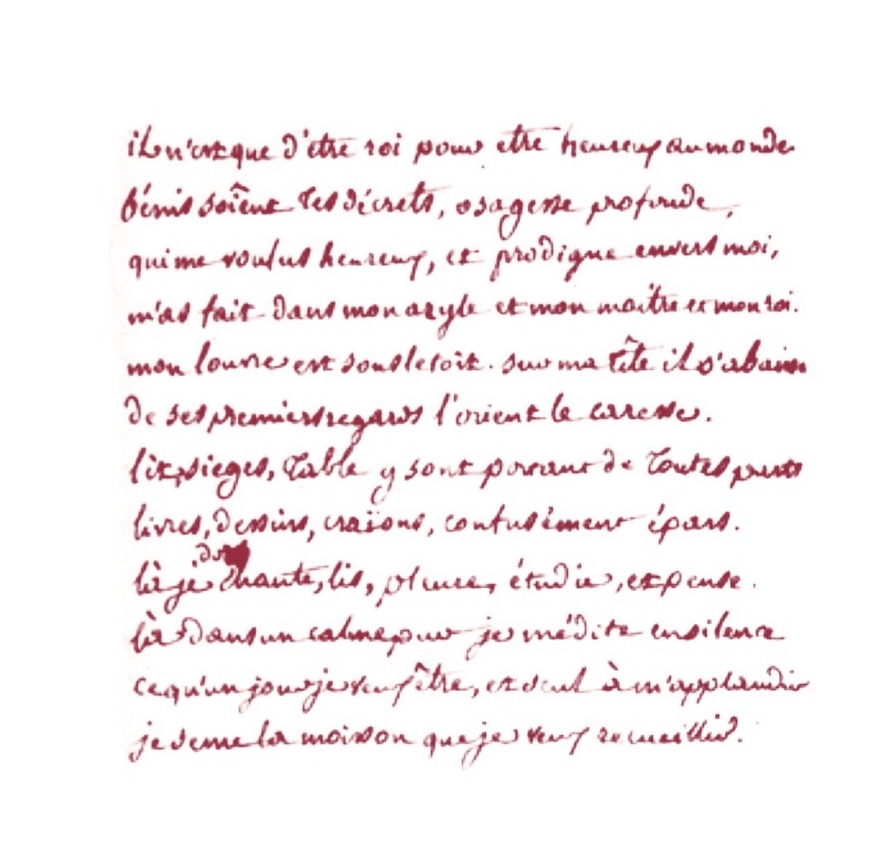 il n'est que d'etre roi pour etre heureux au monde
bénis soient tes décrets, o sagesse profonde,
qui me voulus heureux, et prodigue envers moi,
m'as fait dans mon azyle et mon maitre et mon roi.
mon louvre est sous le toit. sur ma tête il s'abaisse
de ses premiers regards l'orient le caresse.
lit, sieges, table y sont portant de toutes parts
livres, dessins, craïons, confusément épars.
là je dors chante, lis, pleure, étudie, et pense.
là dans un calme pur je médite en silence
ce qu'un jour je veux être, et seul à m'applaudir
je seme la moisson que je veux recueillir.